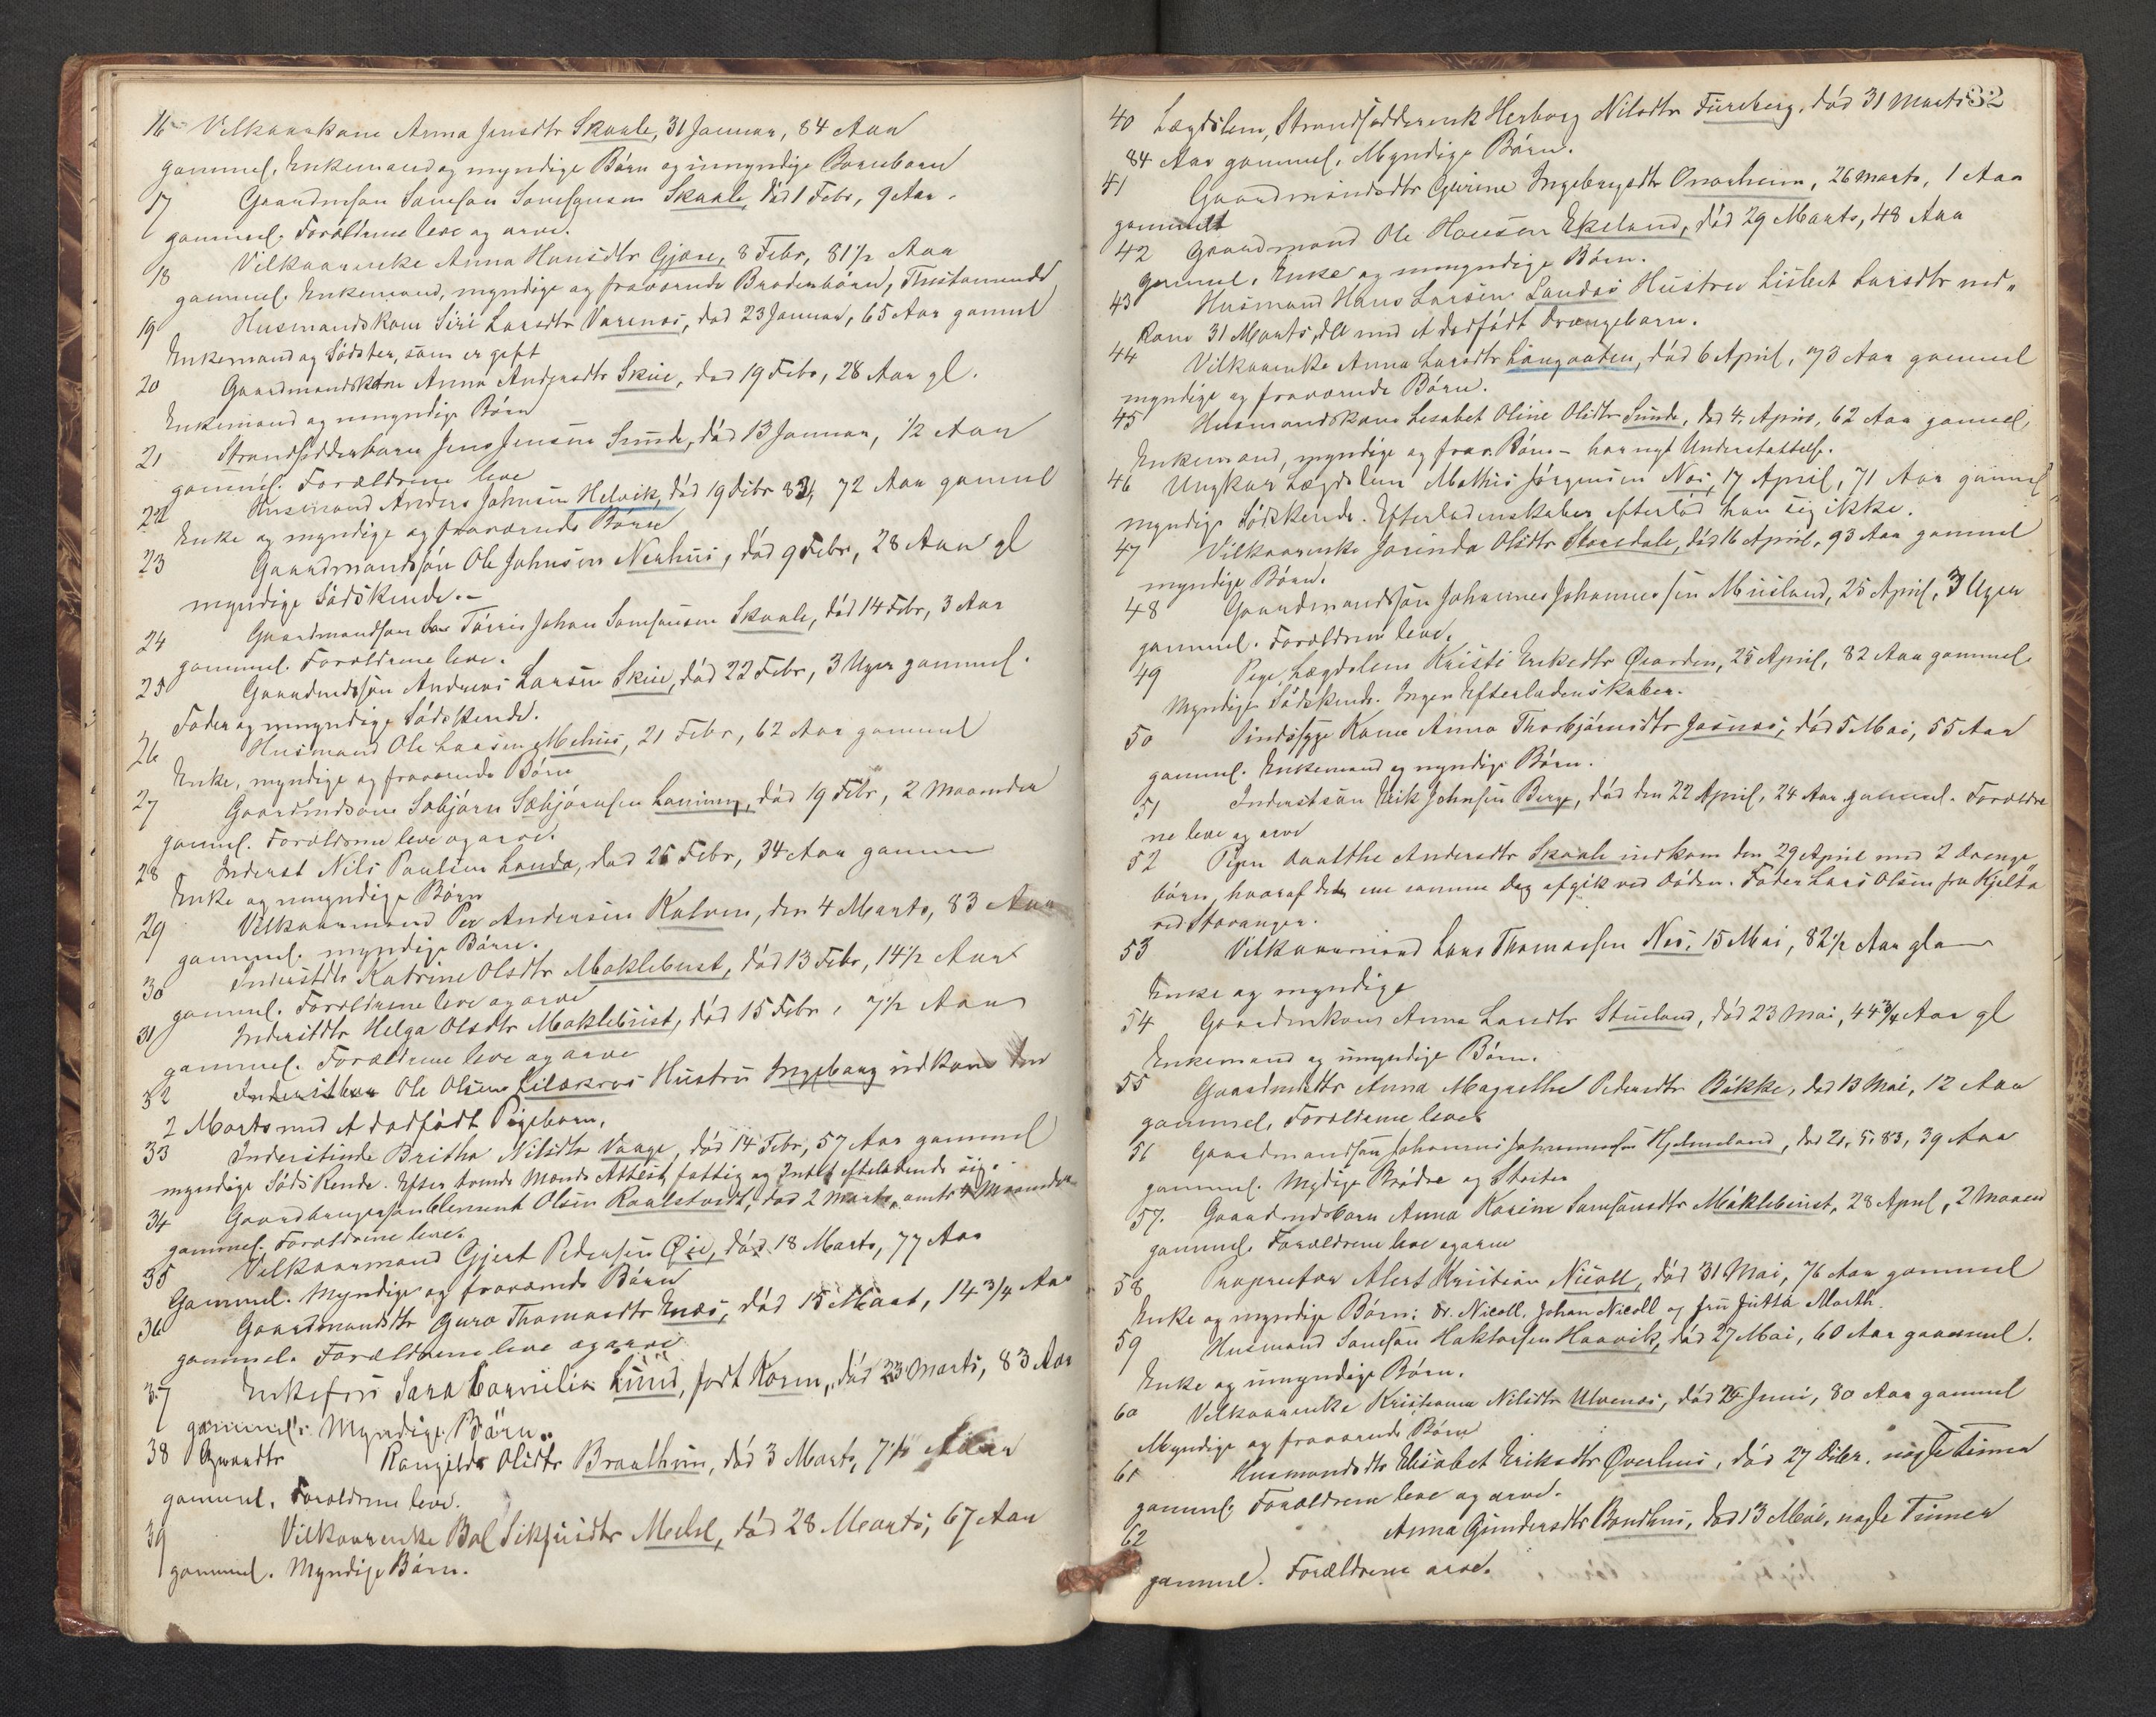 16 Velkaarkone Anna Jensdtr Skaale, 31 Januar, 84 Aar
gammel. Enkemand og myndige Børn og umyndige Barnebarn
17 Gaardmson Samson Samsonsen Skaale, død 1 Febr, 9 Aar
gammel. Forældrene leve og arve.
18 Vilkaarenke Anna Hansdtr Gjære, 8 Febr, 81 1/2 Aar
gammel. Enkemand, myndige og fraværende Broderbørn, Thestamente
19 Husmandskone Siri Larsdtr Varenæs, død 23 Januar, 65 Aar gammel
Enkemand og Sødster, som er gift
20 Gaardmandskone Anna Andersdtr Skeie, død 19 Febr, 28 Aar gl.
Enkemand og umyndige Børn
21 Strandsidderbarn Jens Jensen Sunde, død 13 Januar, 1/2 Aar
gammel. Forældrene leve
22 Husmand Anders Johnsen Helvik, død 19 Debr 82, 72 Aar gammel
Enke og myndige og fraværende Børn
23 Gaardmandssøn Ole Johnsen Nerhus, død 9 Febr, 28 Aar gl
myndige Sødskende.-
24 Gaardmandsøn Tørris Johan Samsonsen Skaale, død 14 Febr, 3 Aar
gammel. Forældrene leve.
25 Gaardmdssøn Andreas Larsen Skeie, død 22 Febr, 3 Uger gammel.
Fader og umyndige Sødskende.
26 Husmand Ole Larsen Mehus, 21 Febr, 62 Aar gammel
Enke, myndige og fraværende Børn
27 Gaardmdsøn Sæbjørn Sæbjørnsen Løning, død 19 Febr, 2 Maaneder
gammel. Forældrene leve og arve.
28 Inderst Nils Paulsen Landa, død 25 Febr, 34 Aar gammel
Enke og umyndige Børn
29 Velkaarmand Per Andersen Kalven, den 4 Marts, 83 Aar
gammel. myndige Børn.
30 Inderstdtr Katrine Olsdtr Møklebust, død 13 Febr, 14 1/2 Aar
gammel. Forældrene leve og arve
31 Inderstdtr Helga Olsdtr Møklebust, død 15 Febr, 7 1/2 Aar
gammel. Forældrene leve og arve
32 Ole Olsen Lilækras Hustru Ingeborg nedkom den
2 Marts med et dødfødt Pigebarn.
33 Inderstinde Britha Nilsdtr Vaage, død 14 Febr, 57 Aar gammel
myndige Sødskende. Efter tvende Mænds Attest fattig og Intet efterladende sig.
34 Gaardbrugersøn Clement Olsen Raalstvedt, død 2 Marts, omtr 4 Maaneder
gammel. Forældrene leve.
35 Velkaarmand Gjert Pedersen Øie, død 18 Marts, 77 Aar
Gammel. Myndige og fraværende Børn
36 Gaardmandsdtr Guro Thomasdtr Enæs, død 15 Mart, 14 3/4 Aar
gammel. Forældrene leve og arve
37 Enkefru Sara Cornilia Lund, født Koren, død 23 Marts, 83 Aar
gammel. Myndige Børn.
38 Rangilda Olsdtr Braatheim, død 3 Marts, 7 1/2 Aar
gammel. Forældrene leve.
39 Vilkaarenke Bol Sikfusdtr Mehl, død 28 Marts, 67 Aar
gammel. Myndige Børn.
32
40 Lægdslem, Strandsidderenk Herborg Nilsdtr Fureberg, død 31 Marts
84 Aar gammel. Myndige Børn.
41 Gaardmandsdtr Gurine Ingebrigtsdtr Onarheim, 26 Marts, 1 Aar
gammelt
42 Gaardmand Ole Hansen Ekeland, død 29 Marts, 48 Aar
gammel. Enke og umyndige Børn.
43 Husmand Hans Larsen Sandæs Hustru Lisbet Larsdtr ned-
kom 31 Marts, del med et dødfødt Drængebarn.
44 Vilkaarenke Anna Larsdtr Langaaten, død 6 April, 73 Aar gammel
myndige og fraværende Børn.
45 Husmandskone Lisabet Oline Olsdtr Sunde, død 4 April, 62 Aar gammel,
Enkemand, myndige og frav. Børn - har nyt Understøttelse.
46 Ungkar Lægdslem Mathis Jørgensen Næs, 17 April, 71 Aar gammel
myndige Sødskende. Efterladenskaber efterlod han sig ikke.
47 Vilkaarenke Jorinda Olsdtr Storedale, død 16 April, 93 Aar gammel
myndige Børn.
48 Gaardmandssøn Johannes Johannessen Musland, 25 April, 3 Uger
gammel. Forældrene leve.
49 Pige, Lægdslem Kristi Eriksdtr Øvarden, 25 April, 82 Aar gammel
Myndige Sødskende. Ingen Efterladenskaber.
50 Sindssyge Kone Anna Thorbjørnsdtr Jøsnæs, død 5 Mai, 55 Aar
gammel. Enkemand og myndige Børn.
51 Inderstsøn Erik Johnsen Berge, død den 22 April, 24 Aar gammel. Forældre
ne leve og arve
52 Pigen Aalthe Andersdtr Skaale nedkom den 29 April med 2 Drenge-
børn, hvoraf det ene samme Dag afgik ved Døden. Fader Lars Olsen fra Kjelsø
ved Stavanger.
53 Vilkaarmand Lars Thomassen Næs, 15 Mai, 82 1/2 Aar gla
Enke og myndige
54 Gaardmkone Anna Larsdtr Stueland, død 23 Mai, 44 3/4 Aar gl
Enkemand og umyndige Børn.
55 Gaardmdsdtr Anna Magrethe Pedersdtr Bøkke, død 13 Mai, 12 Aar
gammel. Forældrene leve.
56 Gaardmandssøn Johannes Johannessen Hjelmeland, død 21. 5. 83, 39 Aar
gammel. Myndige Brødre og Søstre
57. Gaardmdsbarn Anna Karine Samsonsdtr Møklebust, 28 April, 2 Maaned
gammel. Forældrene leve og arve
58 Proprietær Alert Kristian Nicoll, død 31 Mai, 76 Aar gammel
Enke og myndige Børn: Dr. Nicoll, Johan Nicoll og fru Jutta Marth.
59 Husmand Samson Haktorsen Haavik, død 27 Mai, 60 Aar gammel.
Enke og umyndige Børn.
60 Velkaarenke Kristianna Nilsdtr Ulvenæs, død Juni, 80 Aar gammel
Myndige og fraværende Børn
61 Husmandsdtr Elisabet Eriksdtr Øverhus, død 27 Debr. nogle Timer
gammel. Forældrene leve og arve.
62 Anna Gundersdtr Bondhus, død 13 Mai, nogle Timer
gammel. Forældrene arve.